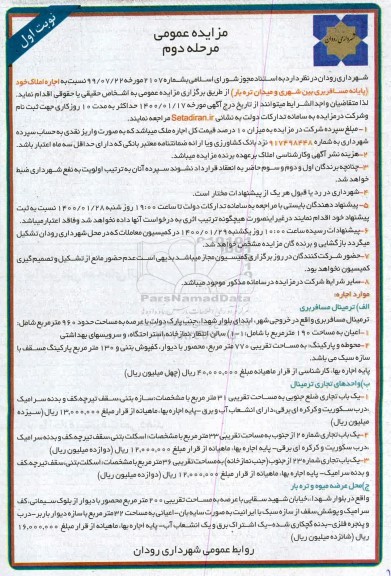 نوبت اول
مزایده عمومی
مرحله دوم
شهرداری رودان
شهرداری رودان در نظر دارد به استناد مجوز شورای اسلامی بشماره ۲۱۰۷ مورخه ۹۹/۰۷/۲۲ نسبت به اجاره املاک خود
(پایانه مسافربری بین شهری و میدان تره بار) از طریق برگزاری مزایده عمومی به اشخاص حقیقی یا حقوقی اقدام نماید.
لذا متقاضیان واجدالشرایط میتوانند از تاریخ درج آگهی مورخه ۱۴۰۰/۰۱/۱۷ حداکثر به مدت ۱۰ روز کاری جهت ثبت نام
وشرکت در مزایده به سامانه تدارکات دولت به نشانی Setadiran.ir مراجعه نمایند.
۱-مبلغ سپرده شرکت در مزایده به میزان ۱۰ درصد قیمت کل اجاره ملک میباشد که به صورت واریز نقدی به حساب سپرده
شهرداری به شماره ۹۱۷۴۹۸۴۴۸ نزد بانک کشاورزی ویا ارائه ضمانتنامه معتبر بانکی که دارای حداقل سه ماه اعتبار باشد.
۲-هزینه نشر آگهی وکارشناسی املاک بر عهده برنده مزایده میباشد.
۳-چنانچه برندگان اول و دوم و سوم حاضر به انعقاد قرارداد نشوند سپرده آنان به ترتیب اولویت به نفع شهرداری ضبط
خواهد شد.
۴-شهرداری در رد یا قبول هر یک از پیشنهادات مختار است.
۵-پیشنهاد دهندگان بایستی با مراجعه به سامانه تدارکات دولت تا ساعت ۱۹:۰۰ روز شنبه ۱۴۰۰/۰۱/۲۸ نسبت به ثبت
پیشنهاد خود اقدام نمایند در غیر اینصورت هیچگونه ترتیب اثری به درخواست آنها داده نخواهد شد وفاقد اعتبار میباشد.
۶-پیشنهادات رسیده ساعت ۱۰:۰۰ روز یکشنبه ۱۴۰۰/۰۱/۲۹ در کمیسیون معاملات که در محل شهرداری رودان تشکیل
میگردد بازگشایی و برنده گان مزایده مشخص خواهد شد.
۷-حضور شرکت کنندگان در روز برگزاری کمیسیون مجاز میباشد بدیهی است عدم حضور مانع از تشکیل و تصمیم گیری
کمیسیون نخواهد بود.
۸-سایر شرایط شرکت در مزایده در سامانه مذکور موجود میباشد.
موارد اجاره:
الف) ترمینال مسافربری
ترمینال مسافربری واقع در خروجی شهر، ابتدای بلوار شهدا، جنب پارک دولت با عرصه به مساحت حدود ۹۶۰ متر مربع شامل:
۱-اعیان به مساحت ۱۹۰ متر مربع با شامل: (۱۰) سالن انتظار، نمازخانه، استراحتگاه، و سرویسهای بهداشتی
۲-محوطه و پارکینگ: به مساحت تقریبی ۷۷۰ متر مربع، محصور با دیوار، کفپوش بتنی و ۱۳۰ متر مربع پارکینگ مسقف با
سازه سبک می باشد.
پایه اجاره بها، کارشناسی از قرار ماهیانه مبلغ ۴۰,۰۰۰,۰۰۰ ریال (چهل میلیون ریال)
ب) واحدهای تجاری ترمینال
۱-یک باب تجاری ضلع جنوبی به مساحت تقریبی ۳۱ متر مربع با مشخصات: سازه بتنی، سقف تیرچه، کف و بدنه سرامیک
،درب سکوریت و کرکره ای برقی، دارای انشعاب آب و برق -پایه اجاره بها، ماهیانه از قرار مبلغ ۱۳,۰۰۰,۰۰۰ ریال (سیزده
میلیون ریال)
۲-یک باب تجاری شماره ۲ از جنوب به مساحت تقریبی ۳۳ متر مربع با مشخصات: اسکلت بتنی، سقف تیرچه کف و بدنه سرامیک
،درب سکوریت و کرکره ای برقی- پایه اجاره بها، ماهیانه از قرار مبلغ ۱۲,۰۰۰,۰۰۰ ریال (دوازده میلیون ریال)
۳-یک باب تجاری شماره ۲۳ از جنوب (جنب نمازخانه) به مساحت تقریبی ۳۶ متر مربع با مشخصات: اسکلت بتنی، سقف تیرچه کف
و بدنه سرامیک- پایه اجاره بها، ماهیانه از قرار مبلغ ۱۲,۰۰۰,۰۰۰ ریال (دوازده میلیون ریال)
ج) محل عرضه میوه و تره بار
واقع در بلوار شهدا، خیابان شهید سقایی با عرصه به مساحت تقریبی ۲۰۰ متر مربع محصور با دیوار از بلوک سیمانی، کف
سرامیک و پوشش سقف از سازه سبک با ایرانیت به صورت سایه بان-اعیانی به مساحت ۳۲ متر مربع با سازه دیوار باربر-درب
و پنجره فلزی-بدنه گچکاری شده-یک اشتراک برق و یک انشعاب آب- پایه اجاره بها، ماهیانه از قرار مبلغ ۱۶,۰۰۰,۰۰۰
ریال (شانزده میلیون ریال)
روابط عمومی شهرداری رودان
ParsNamadData